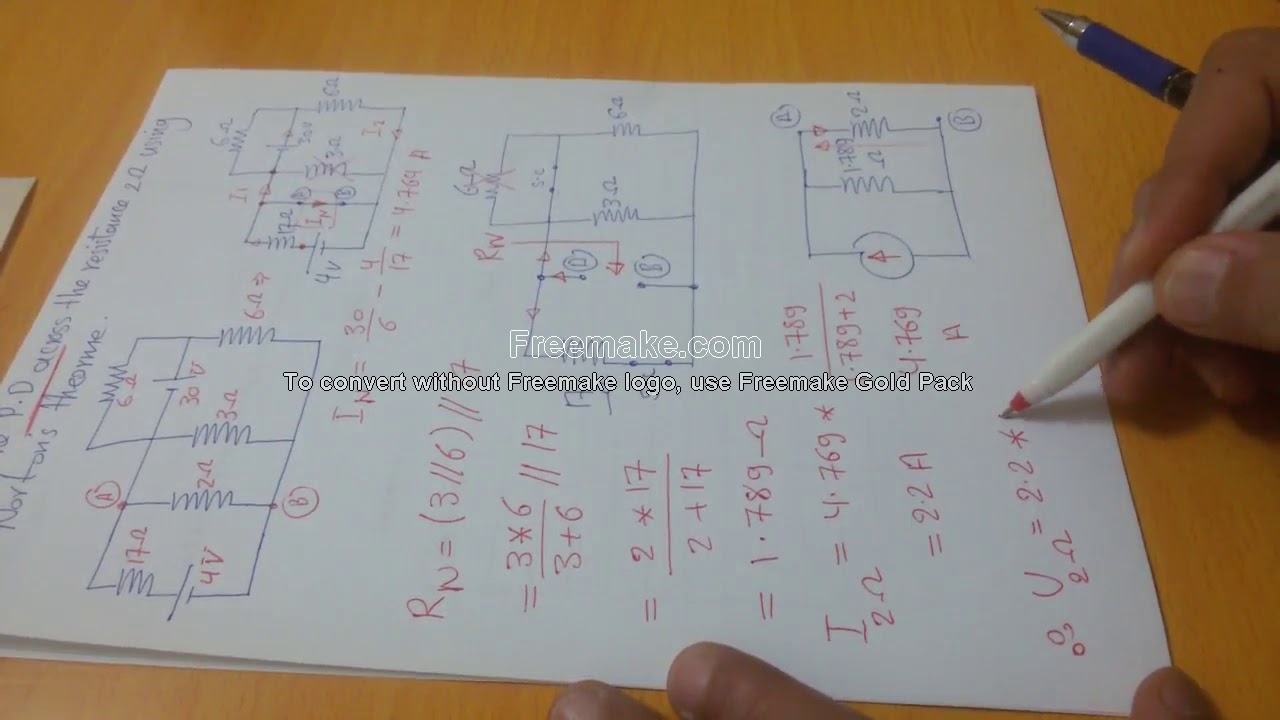 P.D across the resistance 2Ω using
Nortons theorme.
6Ω
30V
3Ω
2Ω
17Ω
4V
6Ω ⇒
A
B
6Ω
30V
3Ω
6Ω
17Ω
4V
I1
I2
IN
A
B
IN = 30/6 - 4/17 = 4.764 A
6Ω
s.c
3Ω
6Ω
RN
A
B
RN = (3//6)//17
= 3*6/3+6 // 17
= 2*17/2+17
= 1.789 Ω
A
B
1.789
Ω
2Ω
4.769
A
I2Ω = 4.769 * 1.789/1.789+2
= 2.2 A
∴ U2Ω = 2.2 *
Freemake.com
To convert without Freemake logo, use Freemake Gold Pack